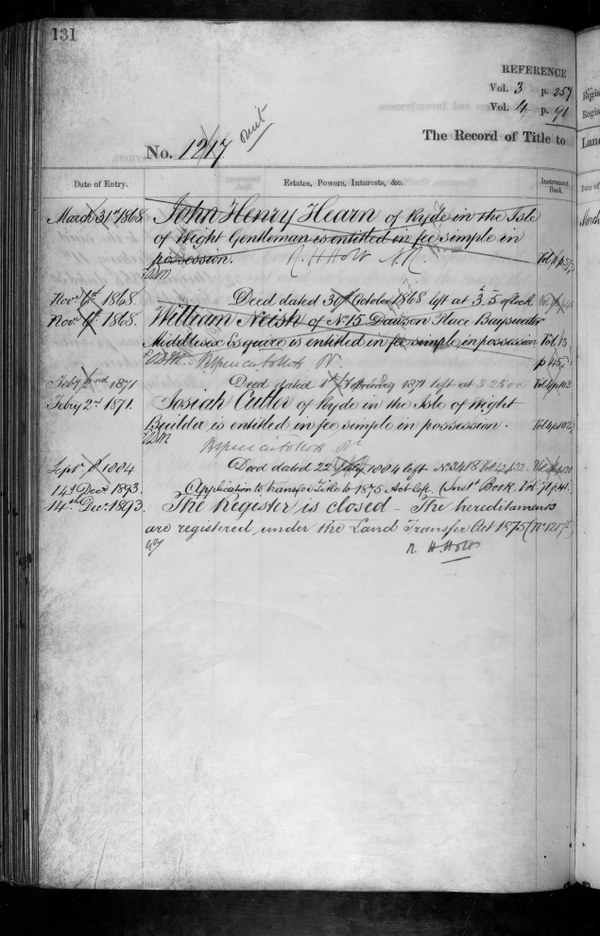 131
REFERENCE
Vol. 3 p. 257
Vol. 4 p. 91
The Record of Title to
No. 1217.
Date of Entry.
Estates, Powers, Interests, &c.
Instrument Book.
March 31st 1868
John Henry Hearn of Ryde in the Isle
of Wight Gentleman is entitled in fee simple in
possession.
R. H. Holt
Novr 6th 1868.
Deed dated 30th October 1868 left at 3.5 o'clock
Novr 6th 1868.
William Neish of No 15 Dawson Place Bayswater
Middlesex Esquire is entitled in fee simple in possession
Vol 13
Feby 2nd 1871
Deed dated 1st February 1871 left at 3.25 o'c
Vol 4 p 102
Febry 2nd 1871.
Josiah Cutler of Ryde in the Isle of Wight
Builder is entitled in fee simple in possession.
Vol 4 p 102
1884
Deed dated 22 July 1884 left No 3418
14th Decr 1893.
Application to transfer Title to 1875 Act left. (Inst Book, Vol 71 p. 41.
14th Decr 1893.
The Register is closed – The hereditaments
are registered under the Land Transfer Act 1875 (No 1217)
R. H. Holt